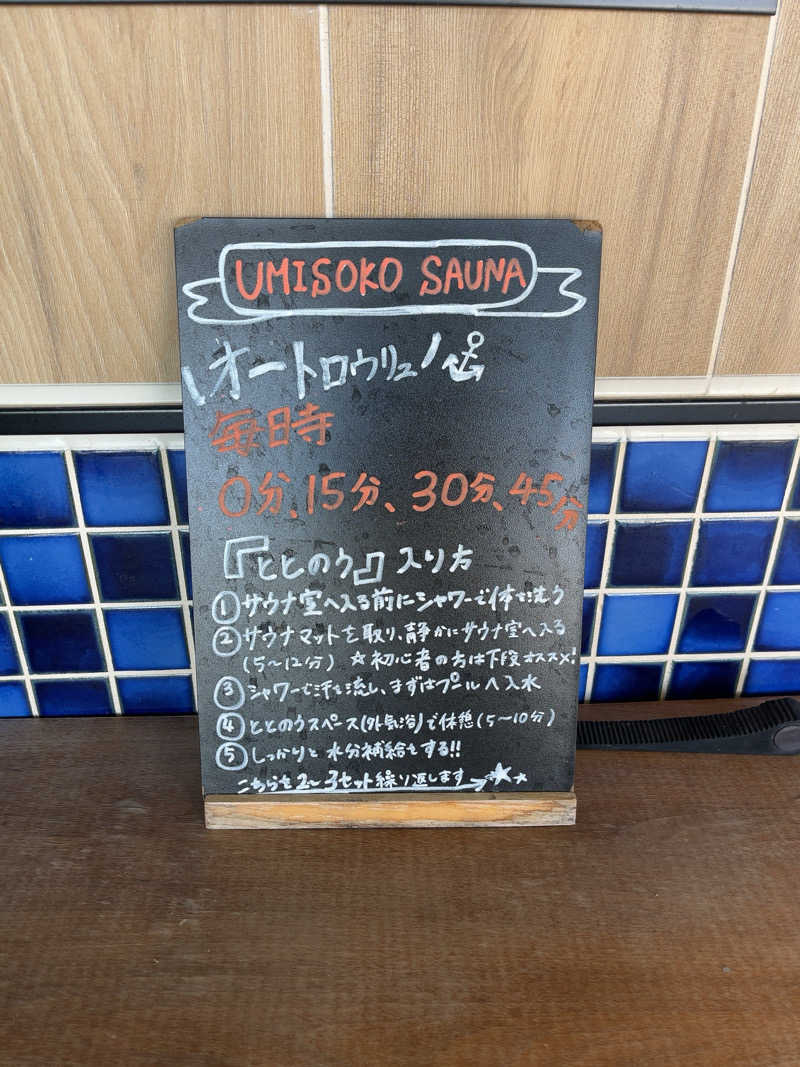 UMISOKO SAUNA
\オートロウリュ/
毎日時
0分、15分、30分、45分
『ととのう』入り方
①サウナ室へ入る前にシャワーで体を洗う
②サウナマットを取り、静かにサウナ室へ入る
(5〜12分) ☆初心者の方は下段オススメ!
③シャワーで汗を流し、まずはプールへ入水
④ととのうスペース(外気浴)で休憩(5〜10分)
⑤しっかりと水分補給をする!!
こちらを2〜3セット繰り返します